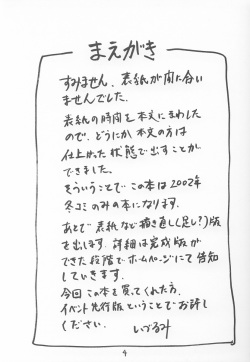 まえがき
すみません、表紙が間に合い
ませんでした。
表紙の時間を本文にまわした
ので、どうにか本文の方は
仕上がった状態で出すことが
できました。
そういうことで この本は2002年
冬コミのみの本になります。
あとで表紙など描き直し(足し?)版
を出します。詳細は完成版が
できた段階でホームページにて告知
していきます。
今回この本を買ってくれた方、
イベント先行版ということでお許し
ください。
いづるみ
4